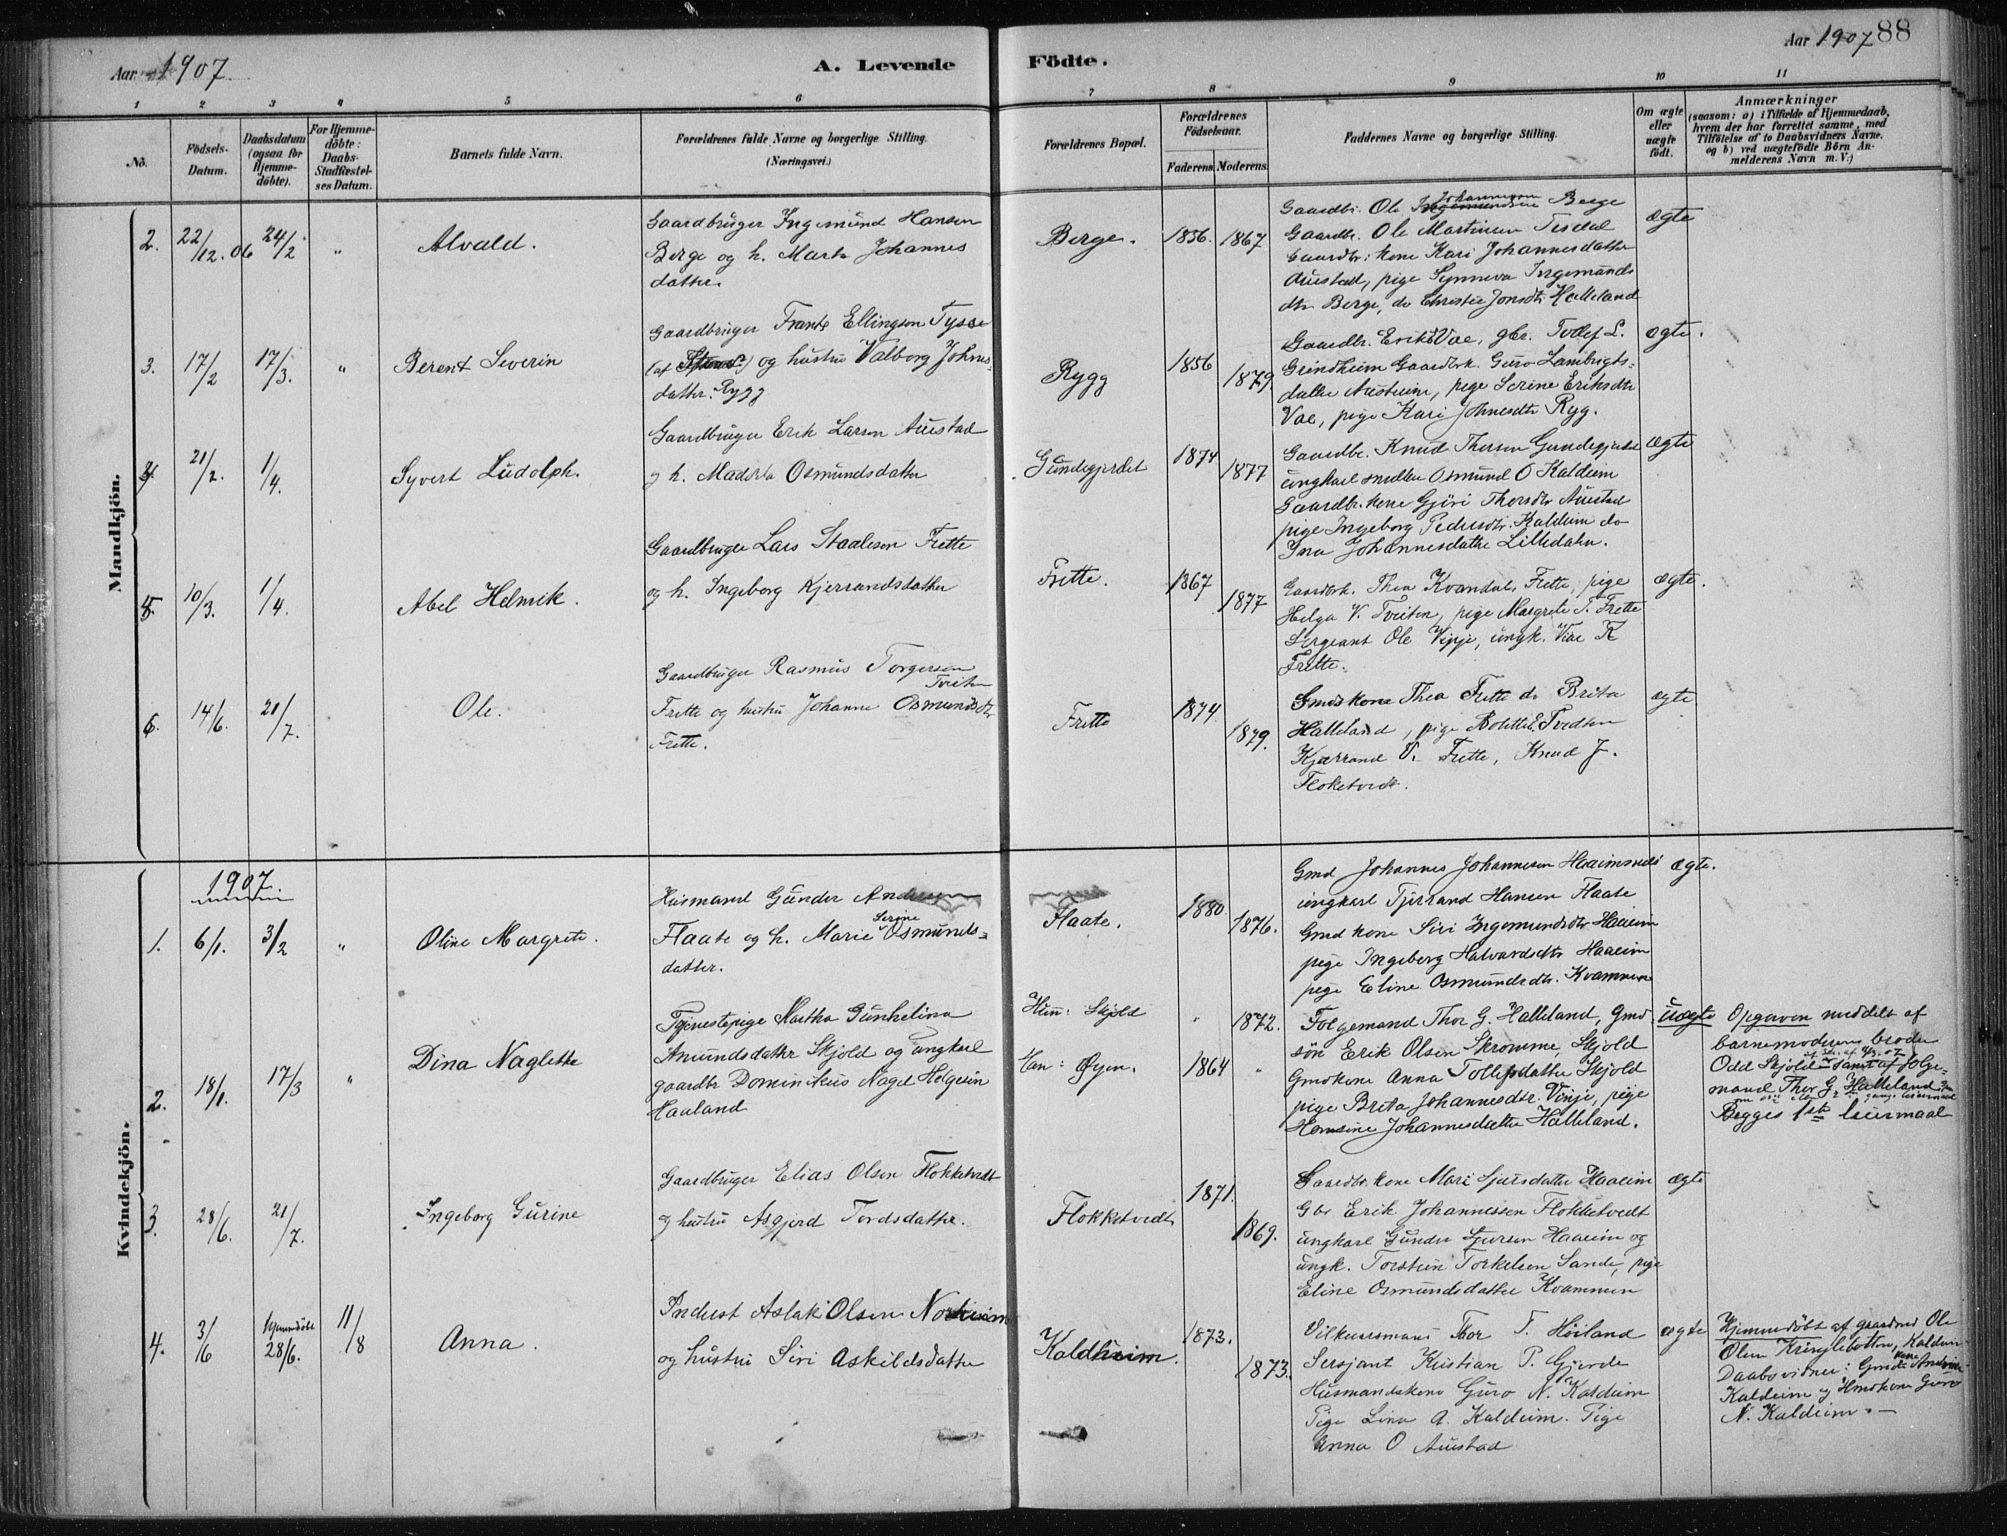 Aar 1907.
A. Levende Födte.
Aar 1907 88
1 2 3 4 5 6 7 8 9 10 11
No.
Födsels-Datum.
Daabsdatum (ogsaa for Hjemme-döbte).
For Hjemme-döbte: Daabs-Stadfæstel-ses Datum.
Barnets fulde Navn.
Forældrenes fulde Navne og borgerlige Stilling.
(Næringsvei.)
Forældrenes Bopæl.
Forældrenes Födselsaar.
Faderens. Moderens.
Faddernes Navne og borgerlige Stilling.
Om ægte eller uægte födt.
Anmærkninger
(saasom: a) i Tilfælde af Hjemmedaab,
hvem der har forrettet samme, med
Tilföielse af to Daabsvidners Navne,
og b) ved uægtefödte Börn An-
melderens Navn m. V.)
Mandkjön.
2. 22/12.06 24/2 " Alvald.
Gaardbruger Ingemund Hansen
Berge og h. Marta Johannes
datter.
Berge. 1856. 1867
Gaardbr. Ole Johannesen Berge
Gaardbr. Ole Martinsen Tesdal
Gaardbr: kone Kari Johannesdatter
Austad, pige Synneva Ingemunds
dtr Berge, do Christie Jonsdtr Halleland
ægte
3. 17/2 17/3. " Berent Severin
Gaardbruger Frants Ellingson Tysse
og hustru Valborg Johns-
datter Rygg
Rygg 1856 1879
Gaardbr. Erik Vae, gbr. Tollef L.
Grindheim Gaardbrk. Guro Lambrigts-
datter Austreim, pige Serine Eriksdtr
Vae, pige Kari Johnesdtr Ryg.
ægte.
4. 21/2. 1/4. Syvert Ludolph.
Gaardbruger Erik Larsen Austad
og h. Madsta Osmundsdatter
Gundegjerdet 1874 1877
Gaardbr. Knud Thorsen Gundegjerdet
ungkarl snedker Osmund O Kaldeim
Gaardbr. kone Gjöri Thorsdtr Austad
pige Ingeborg Pedersdtr. Kaldeim do
Ina Johannesdatter Lilledalen.
ægte
5. 10/3. 1/4. Abel Helmik.
Gaardbruger Lars Staaleson Frette
og h. Ingeborg Kjerrandsdatter
Frette. 1867 1877
Gaardbrk. Thea Kvandal, Frette, pige
Helga V. Tveiten, pige Margrete T. Frette
Sergeant Ole Vinje, ungk. Vae K
Frette.
ægte.
6. 14/6. 21/7. Ole.
Gaardbruger Rasmus Torgersen
Tveiten
Frette og hustru Johanne Osmundsdtr
Frette.
Frette 1874 1879.
Gmdskone Thea Frette do Brita
Halleland, pige Bolette E. Tvedten
Kjærrand V. Frette, Knud J.
Floketvedt.
ægte
Kvindekjön.
1907.
1. 6/1. 3/2 " Oline Margrete.
Husmand Gunder Andersen
Serine
Flaate og h. Marie Osmunds-
datter.
Flaate. 1880 1876.
Gmd Johannes Johannesen Haaimsnes
ungkarl Tjerrand Hansen Flaate
Gmd kone Siri Ingemundsdtr Haaeim
pige Ingeborg Halvardsdtr Haaeim
pige Eline Osmundsdtr. Kvammen
ægte.
2. 18/1. 17/3 " Dina Naglette
Tjenestepige Martha Gunhelina
Amundsdatter Skjold og ungkarl
gaardbr Dominikus Nagel Helgesen
Haaland
Hun: Skjold " 1872.
Han: Øyen. 1864 "
Folgemand Thor G. Halleland, Gmd.
sön Erik Olsen Skromme, Skjold
Gmdkone Anna Tollefsdatter Skjold
pige Brita Johannesdtr. Vinje, pige
Hansine Johannesdatter Halleland.
uægte
Opgaven meddelt af
barnemoderens broder
Odd Skjold samt af folge-
mand Thor G. Halleland
Begges 1ste leiermaal
3. 28/6. 21/7. Ingeborg Gurine
Gaardbruger Elias Olsen Flokketvedt
og hustru Asgjerd Tordsdatter.
Flokketvedt 1871. 1869.
Gaardbr. kone Mari Sjursdatter Haaeim
Gbr Erik Johannessen Flokketvedt
ungkarl Gunder Sjursen Haaeim og
ungk. Torstein Torkelsen Sande, pige
Eline Osmundsdatter Kvammen
ægte
4. 3/6 hjemmedöbt 28/6. 11/8 Anna.
Inderst Aslak Olsen Norheim
og hustru Siri Askildsdatter
Kaldheim. 1873. 1873.
Vilkaarsmand Thor T. Höiland
Sersjant Kristian P. Gjerde
Husmandskone Guro N. Kaldeim
Pige Lina A. Kaldeim. Pige
Anna O Austad
ægte
Hjemmedöbt af gaardmd Ole
Olsen Kringlebotten, Kaldeim
Daabsvidner: Gmdskone Andrea
Kaldeim og Hmdkone Guro
N. Kaldeim. —